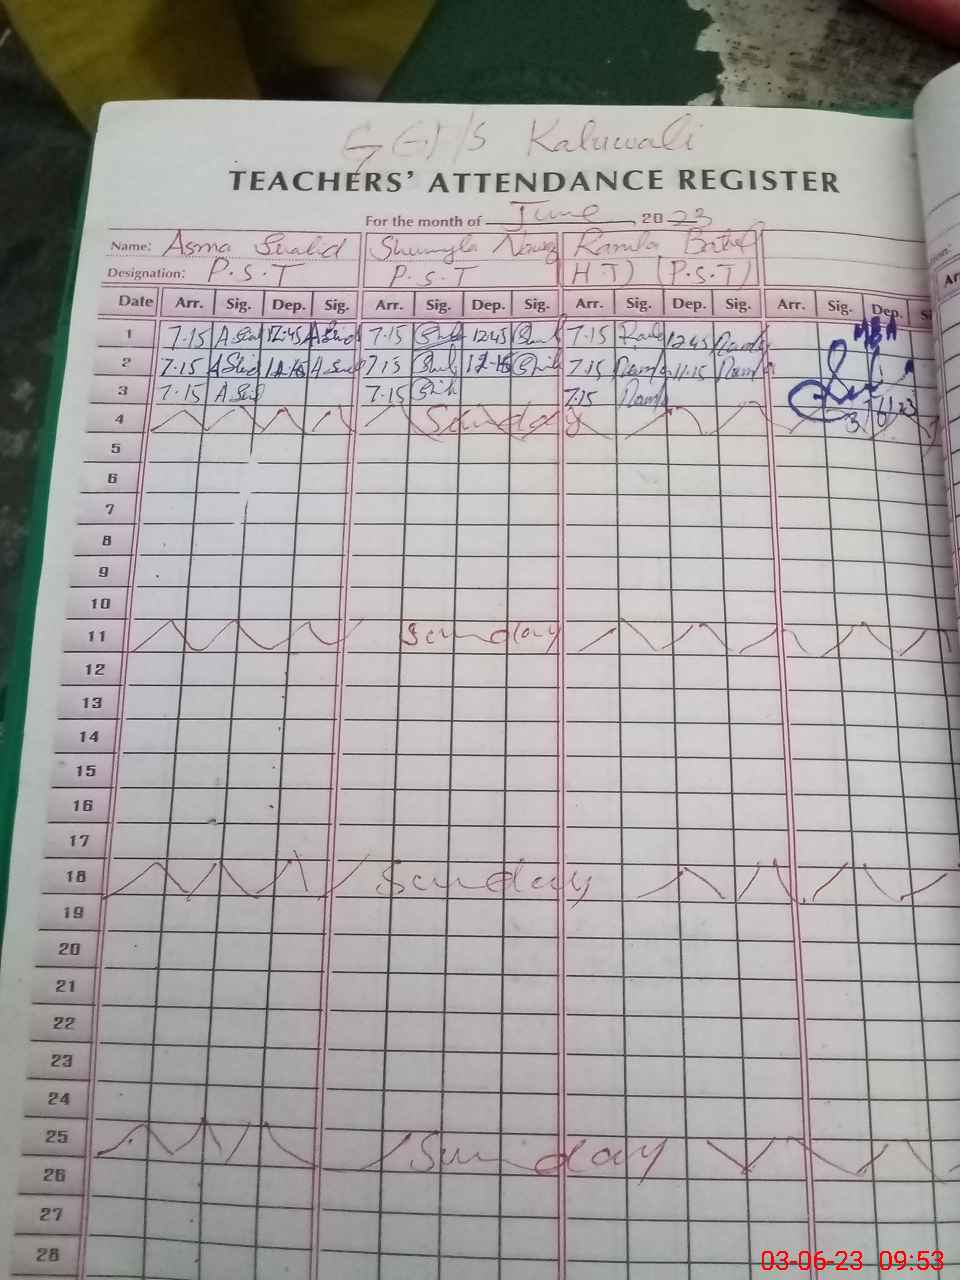 GGHS Kaluwali
TEACHERS' ATTENDANCE REGISTER
For the month of June, 2023
Name: Asma Shahid Shumyla Ramla
Designation: P.S.T P.S.T H.T) (P.S.T)
Date Arr. Sig. Dep. Sig. Arr. Sig. Dep. Sig. Arr. Sig. Dep. Sig. Arr. Sig. Dep.
1 7.15 12.45 7.15 12.45 7.15 12.45
2 7.15 7.15 7.15 11.15
3 7.15 7.15 7.15
3/6/23
4 Sunday
5
6
7
8
9
10
11 Sunday
12
13
14
15
16
17
18 Sunday
19
20
21
22
23
24
25 Sunday
26
27
28
03-06-23 09:53